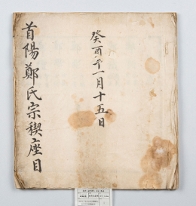 癸酉十一月十五日
首陽鄭氏宗稧座目